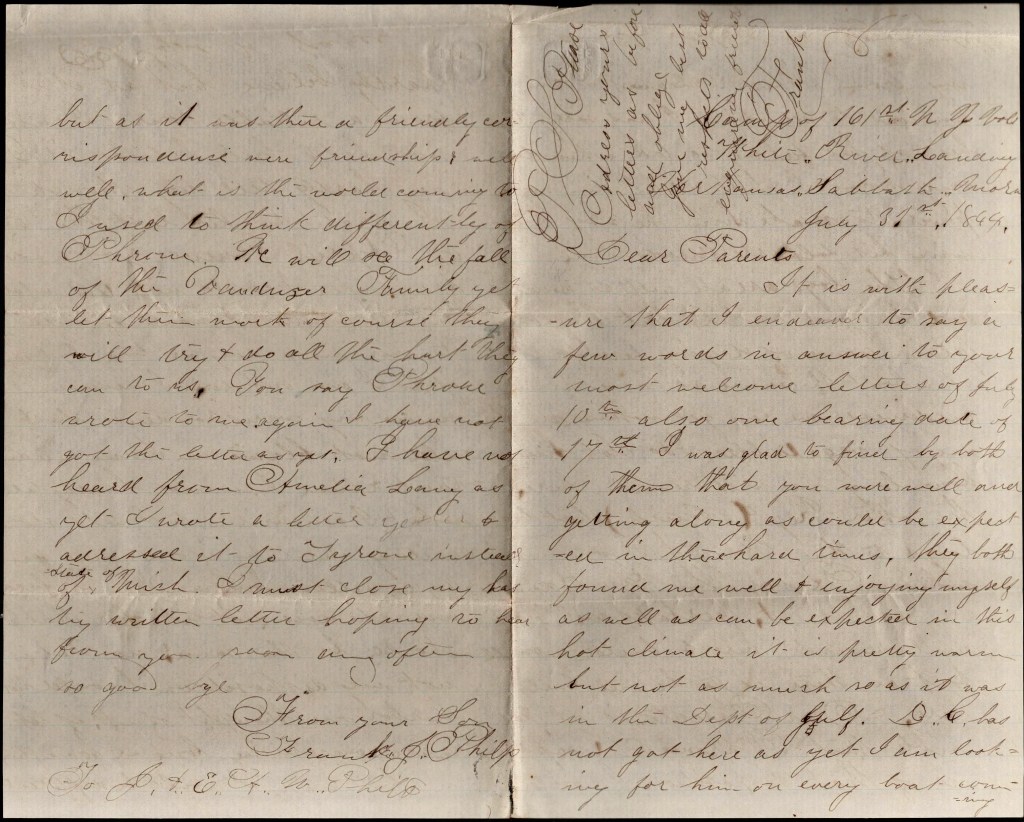 Camp of 161st N Y Vols
White River Landing
Arkansas, Sabbath Morn
July 31st, 1864.
Dear Parents
It is with pleas=
-ure that I endeavor to say a
few words in answer to your
most welcome letters of July
10th also one bearing date of
17th I was glad to find by both
of them that you were well and
getting along as could be expect
-ed in these hard times, they both
found me well & enjoying myself
as well as can be expected in this
hot climate it is pretty warm
but not as much so as it was
in the Dept of Gulf. D. C. has
not got here as yet I am look=
ing for him on every boat com
=ing
but as it was there a friendly cor
rispondence were friendship, well
well, what is the world coming to
I used to think differently of
Phrone. We will see the fall
of the Vanduzer Family yet
let them work of course they
will try & do all the hurt they
can to us, You say Phrone
wrote to me again I have not
got the letter as yet. I have not
heard from Amelia Lany as
yet I wrote a letter &
adressed it to Tyrone instead
State of
of Mich. I must close my has
tily written letter hoping to hear
from you soon and often
so good bye
From your Son
Frank C. Philp
To J. & E. H. W. Philp
P S Please
Address yours
letters as before
and oblige
Give my best
respects to all
enquiring friends
Frank